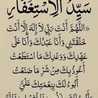 سَيِّدُ الِاسْتِغْفَارِ
اللَّهُمَّ أَنْتَ رَبِّي لَا إِلَهَ إِلَّا أَنْتَ
خَلَقْتَنِي وَأَنَا عَبْدُكَ وَأَنَا عَلَى
عَهْدِكَ وَوَعْدِكَ مَا اسْتَطَعْتُ
أَعُوذُ بِكَ مِنْ شَرِّ مَا صَنَعْتُ
أَبُوءُ لَكَ بِنِعْمَتِكَ عَلَيَّ